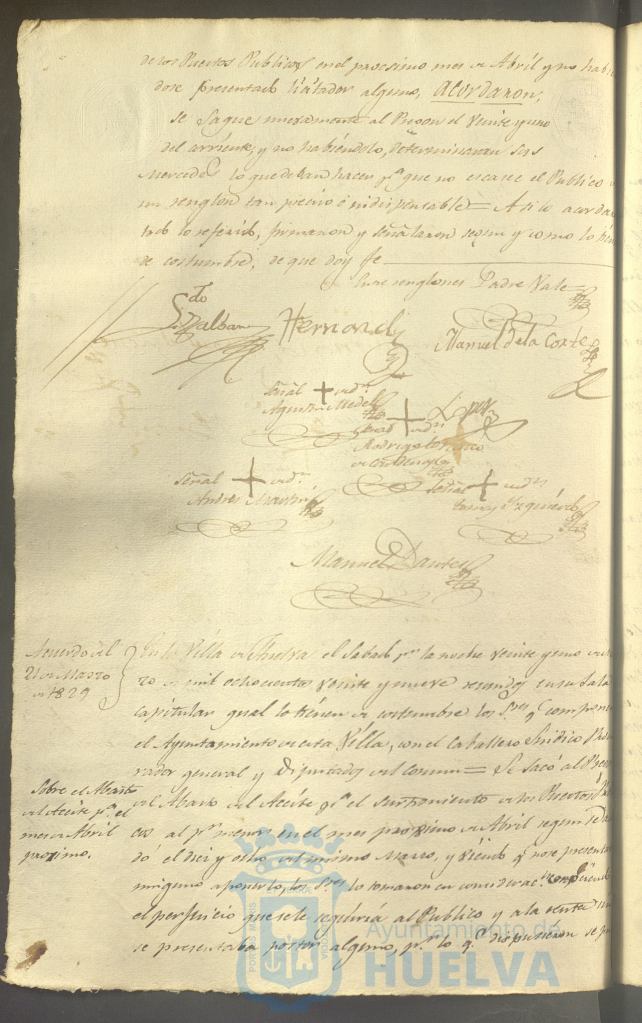 de los Puestos Publicos en el procsimo mes de Abril y no habi
dose presentado licitador alguno, acordaron,
se saque nuevamente al Pregon el veinte y uno
del corriente, y no habiendolo, determinaran sus
Mercedes lo que deban hacer p.ª que no escasee el Publico
un renglon tan preciso é indispensable = Asi lo acorda
lo referido, firmaron y señalaron segun y como lo
de costumbre, de que doy fe
Entre renglones Padre Vale
Hernand
Manuel de la Corte
señal + de
Agustin Medel
Lopez
señal + de
Rodrigo
señal + de
Andres Martin
señal + de
Izquierdo
Manuel
Acuerdo del
21 de Marzo
de 1829
En la Villa de Huelva el Sabado p.r la noche veinte y uno de
zo de mil ochocientos veinte y nueve reunidos en su Sala
capitular qual lo tienen de costumbre los S.res q.e compone
el Ayuntamiento de esta Villa, con el Caballero Sindico Pro
rador general y Diputados del comun = Se sacó al Pre
Sobre el Abasto
del Aceite p.ª el
mes de Abril
proximo.
del Abasto del Aceite p.ª el surtimiento de los Puestos
cos al p.r menor en el mes proximo de Abril segun se
dó el diez y ocho del mismo Marzo, y viendo q.e no se presenta
ninguno a ponerlo, los S.res lo tomaron en considerac.n
el perjuicio que se le seguiria al Publico y a la renta
se presentaba postor alguno, p.r lo q.e dispusieron se
Ayuntamiento de
HUELVA